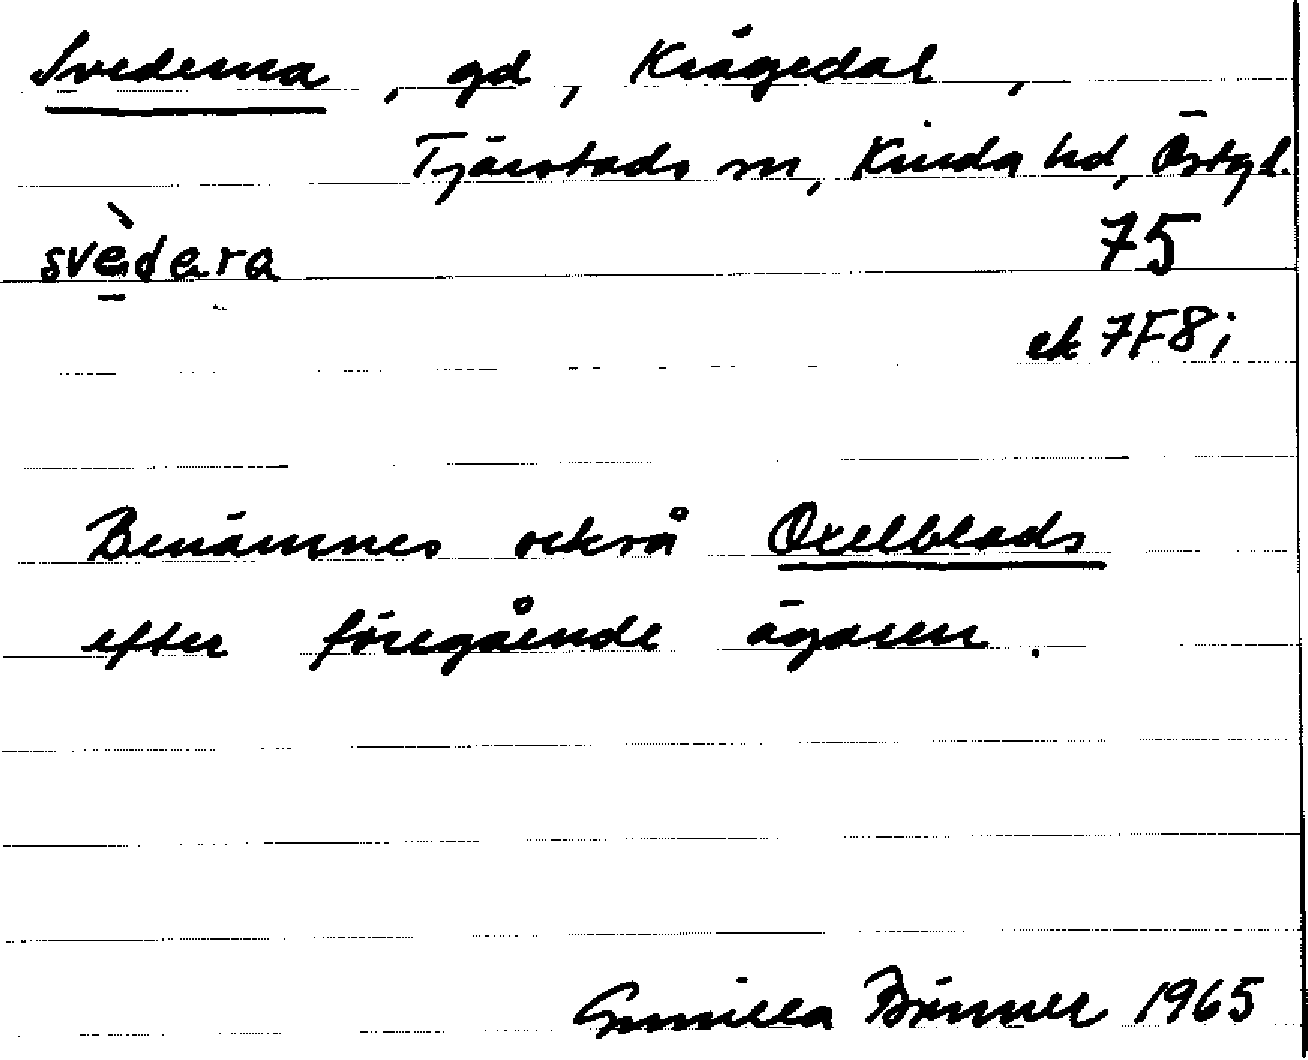 Svederna, gd, Krågedal,
Tjärstads sn, Kinda hd, Östgl.
svèdara 75
ek 7F8i
Benämnes också Oxelblads
efter föregående ägaren.
Gunilla 1965